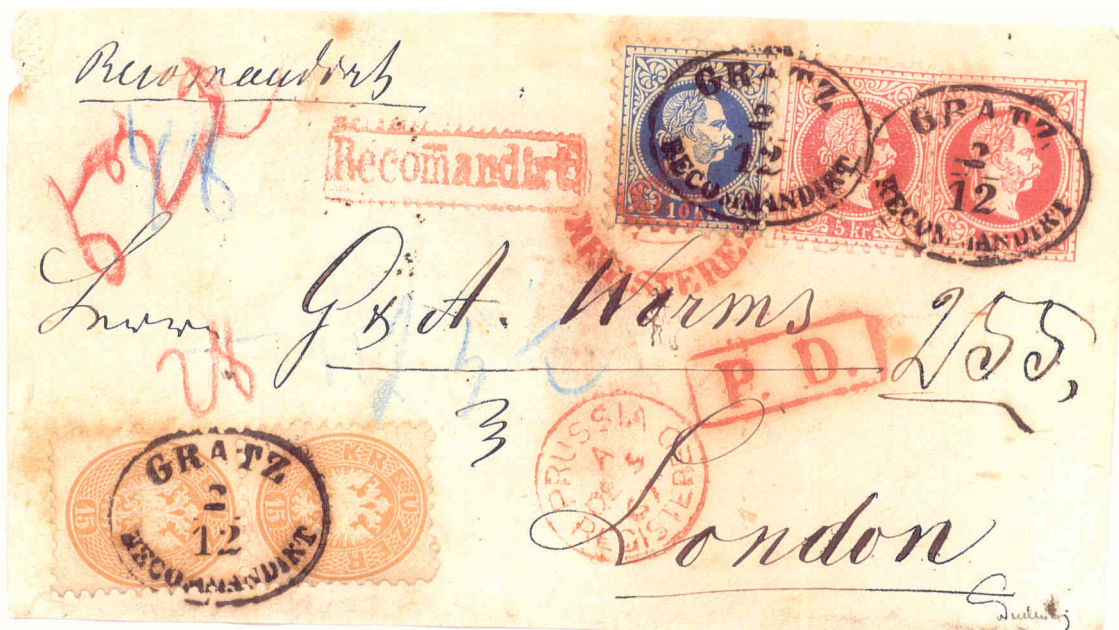 Recomandirt
Recom̄andirt
GRATZ
2
12
RECOMMANDIRT
GRATZ
2
12
RECOMMANDIRT
10 kr.
5 kr.
REGISTERED
Herrn G & A. Worms 255,
P. D.
PRUSSIA
DE
REGISTERED
London
GRATZ
2
12
RECOMMANDIRT
15
15
KREUZER